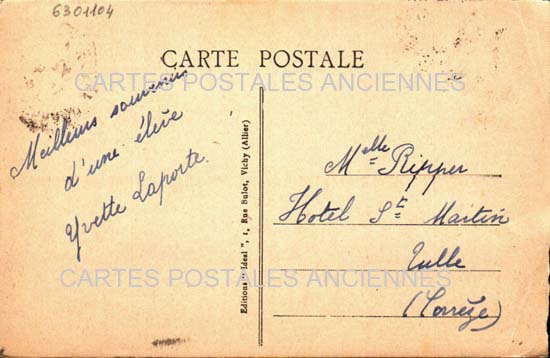 6301104
CARTE POSTALE
CARTES POSTALES ANCIENNES
Meilleurs souvenirs
d'une élève
Yvette Laporte.
Editions "Ideal", 1, Rue Bulot, Vichy (Allier)
Melle Ripper
Hotel St Martin
Tulle
(Corrèze)
CARTES POSTALES ANCIENNES